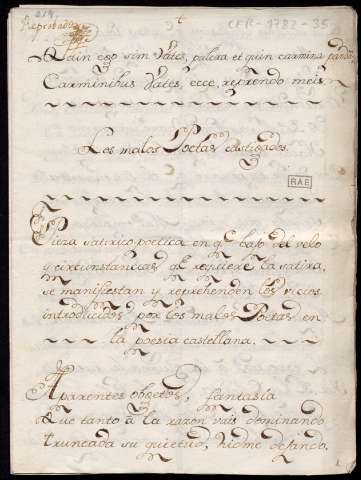 Reprobada
CER-1782-35
Quin ego sim Vates, pulcra et quin carmina pandã
Carminibus Vates, ecce, reprendo meis.
Los malos Poetas castigados.
RAE
Pieza satirico poetica en qe. bajo del velo
y circunstancias qe. requiere la satira,
se manifiestan y reprehenden los vicios
introducidos por los malos Poetas en
la poesia castellana.
Aparentes objetos, fantasia
Que tanto à la razon vais dominando
truncada su quietud, idme dejando.
1